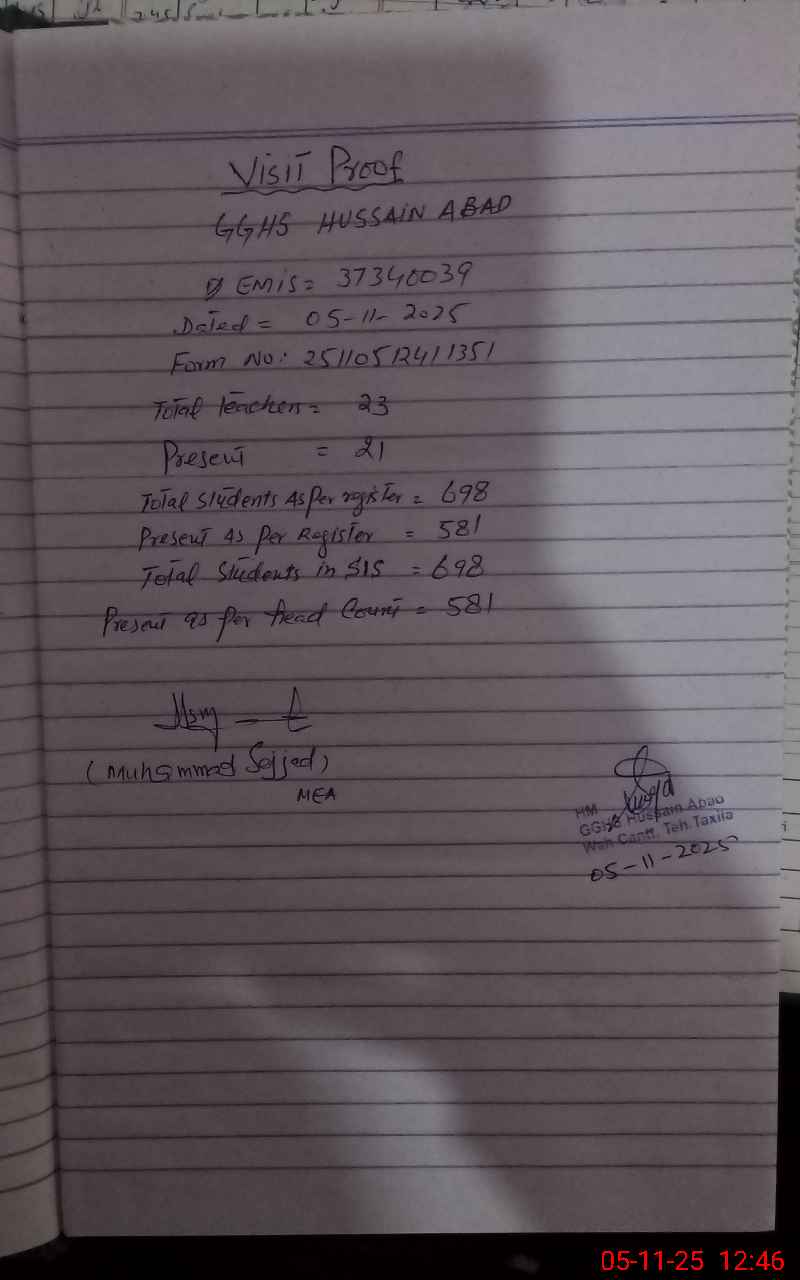 Visit Proof
GGHS HUSSAIN ABAD
EMIS = 37340039
Dated = 05-11-2025
Form No: 25110512411351
Total teachers = 23
Present = 21
Total Students As Per register = 698
Present As Per Register = 581
Total Students in SIS = 698
Present as per head Count = 581
(Muhammad Sajjad)
MEA
HM
GGHS Hussain Abad
Wah Cantt. Teh. Taxila
05-11-2025
05-11-25 12:46